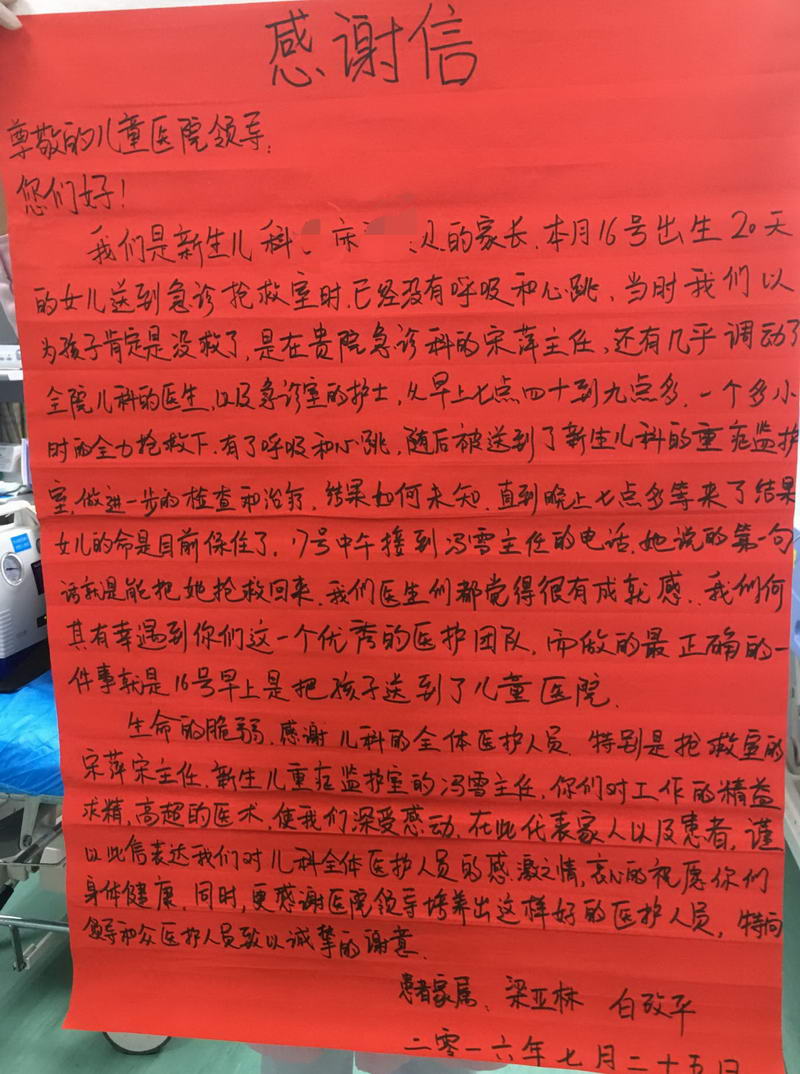 感谢信
尊敬的儿童医院领导:
您们好!
我们是新生儿科 床 的家长.本月16号出生20天
的女儿送到急诊抢救室时.已经没有呼吸和心跳、当时我们以
为孩子肯定是没救了,是在贵院急诊科的宋萍主任、还有几乎调动了
全院儿科的医生,以及急诊室的护士,从早上七点四十到九点多.一个多小
时的全力抢救下.有了呼吸和心跳,随后被送到了新生儿科的重症监护
室,做进一步的检查和治疗,结果如何未知.直到晚上七点多等来了结果
女儿的命是目前保住了,17号中午接到冯雪主任的电话.她说的第一句
话就是能把她抢救回来.我们医生们都觉得很有成就感.我们何
其有幸遇到你们这一个优秀的医护团队,而做的最正确的一
件事就是16号早上是把孩子送到了儿童医院.
生命的脆弱.感谢儿科的全体医护人员.特别是抢救室的
宋萍宋主任.新生儿重症监护室的冯雪主任.你们对工作的精益
求精,高超的医术,使我们深受感动.在此代表家人以及患者,谨
以此信表达我们对儿科全体医护人员的感激之情,衷心的祝愿你们
身体健康.同时,更感谢医院领导培养出这样好的医护人员,特向
领导和众医护人员致以诚挚的谢意.
患者家属、梁亚林 白改平
二零一六年七月二十五日